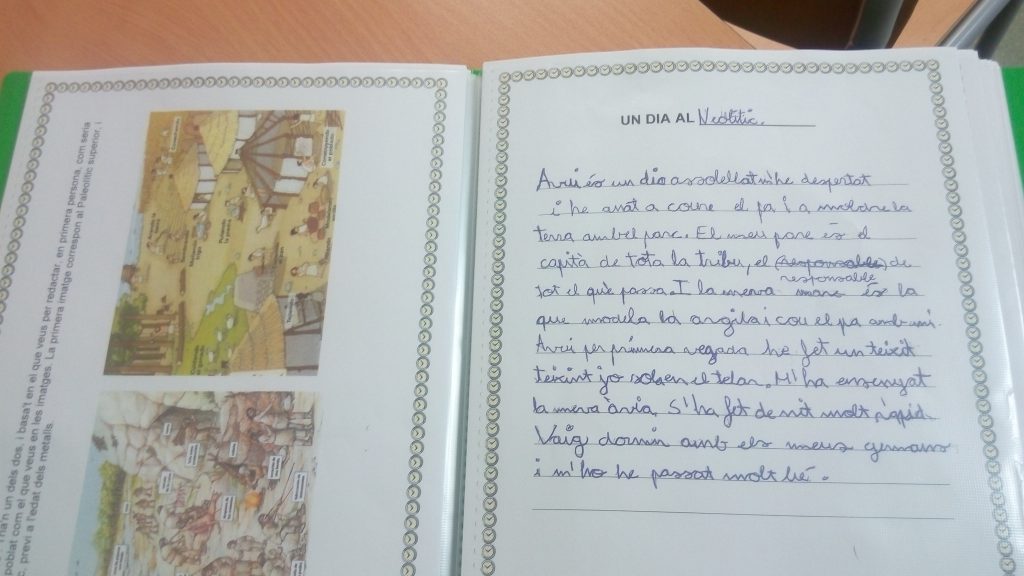 Tria'n un dels dos, i basa't en el que veus per redactar, en primera persona, com seria
poblat com el que veus en les imatges. La primera imatge correspon al Paleolític superior, i
c, previ a l'edat dels metalls.
UN DIA AL Neolític.
Avui és un dia assolellat m'he despertat
i he anat a coure el pa i a moldre la
terra amb el pare. El meu pare és el
capità de tota la tribu, el (responsable) de
responsable
tot el què passa. I la meva mare és la
que modela la argila i cou el pa amb mi.
Avui per primera vegada he fet un teixit
teixint jo sola en el telar. M'ha ensenyat
la meva àvia. S'ha fet de nit molt ràpid.
Vaig dormir amb els meus germans
i m'ho he passat molt bé.